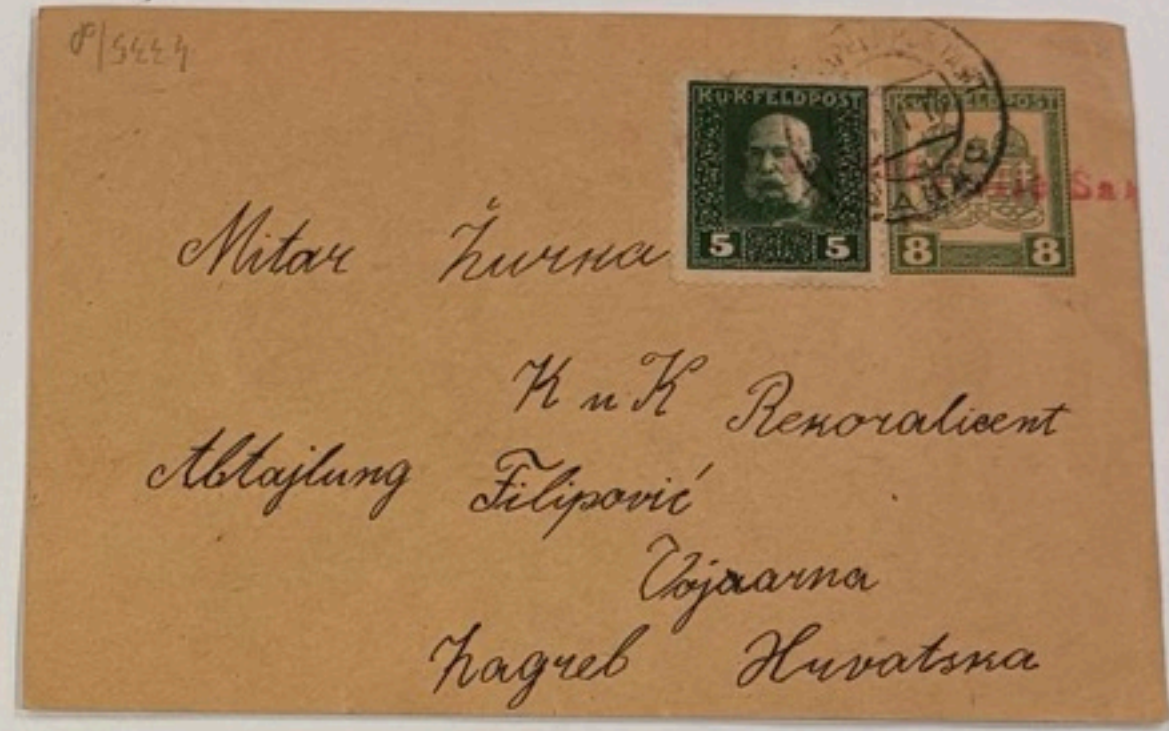 K.u.K.FELDPOST
5 5
K.u.K.FELDPOST
8 8
Mitar Žurna
K u K Rekoralicent
Abtajlung Filipović
Vojaarna
Zagreb Huvatska